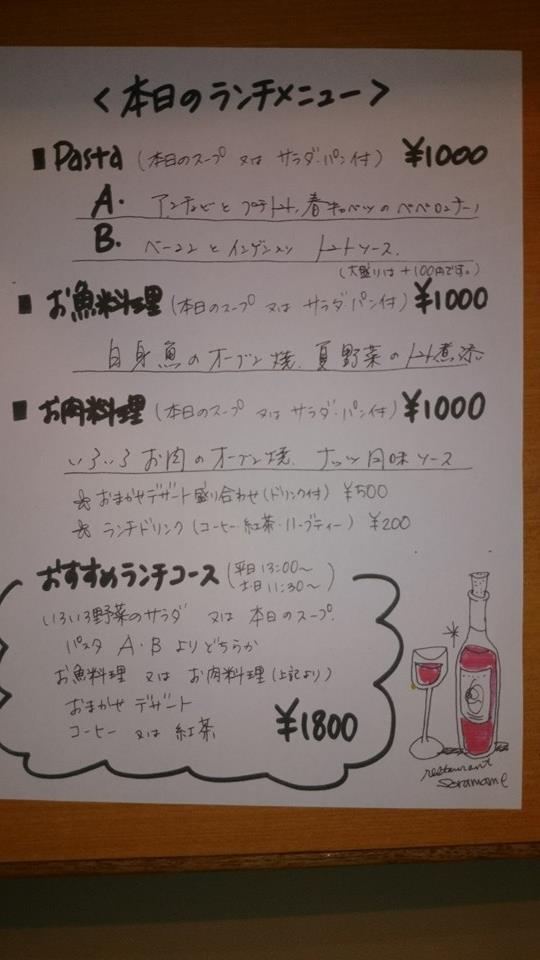 <本日のランチメニュー>
■ Pasta (本日のスープ 又は サラダ・パン付) ¥1000
A. アンチョビと プチトマト、春キャベツのペペロンチーノ
B. ベーコンとインゲン トマトソース.
(大盛りは +100円です。)
■ お魚料理 (本日のスープ 又は サラダ・パン付) ¥1000
白身魚のオーブン焼. 夏野菜のトマト煮添
■ お肉料理 (本日のスープ 又は サラダ・パン付) ¥1000
いろいろお肉のオーブン焼. ナッツ風味ソース
☆ おまかせデザート盛り合わせ(ドリンク付) ¥500
☆ ランチドリンク (コーヒー・紅茶・ハーブティー) ¥200
おすすめランチコース (平日 13:00〜
土・日 11:30〜)
いろいろ野菜のサラダ 又は 本日のスープ.
パスタ A・B よりどちらか
お魚料理 又は お肉料理 (上記より)
おまかせ デザート
コーヒー 又は 紅茶 ¥1800
restaurant
Soramame